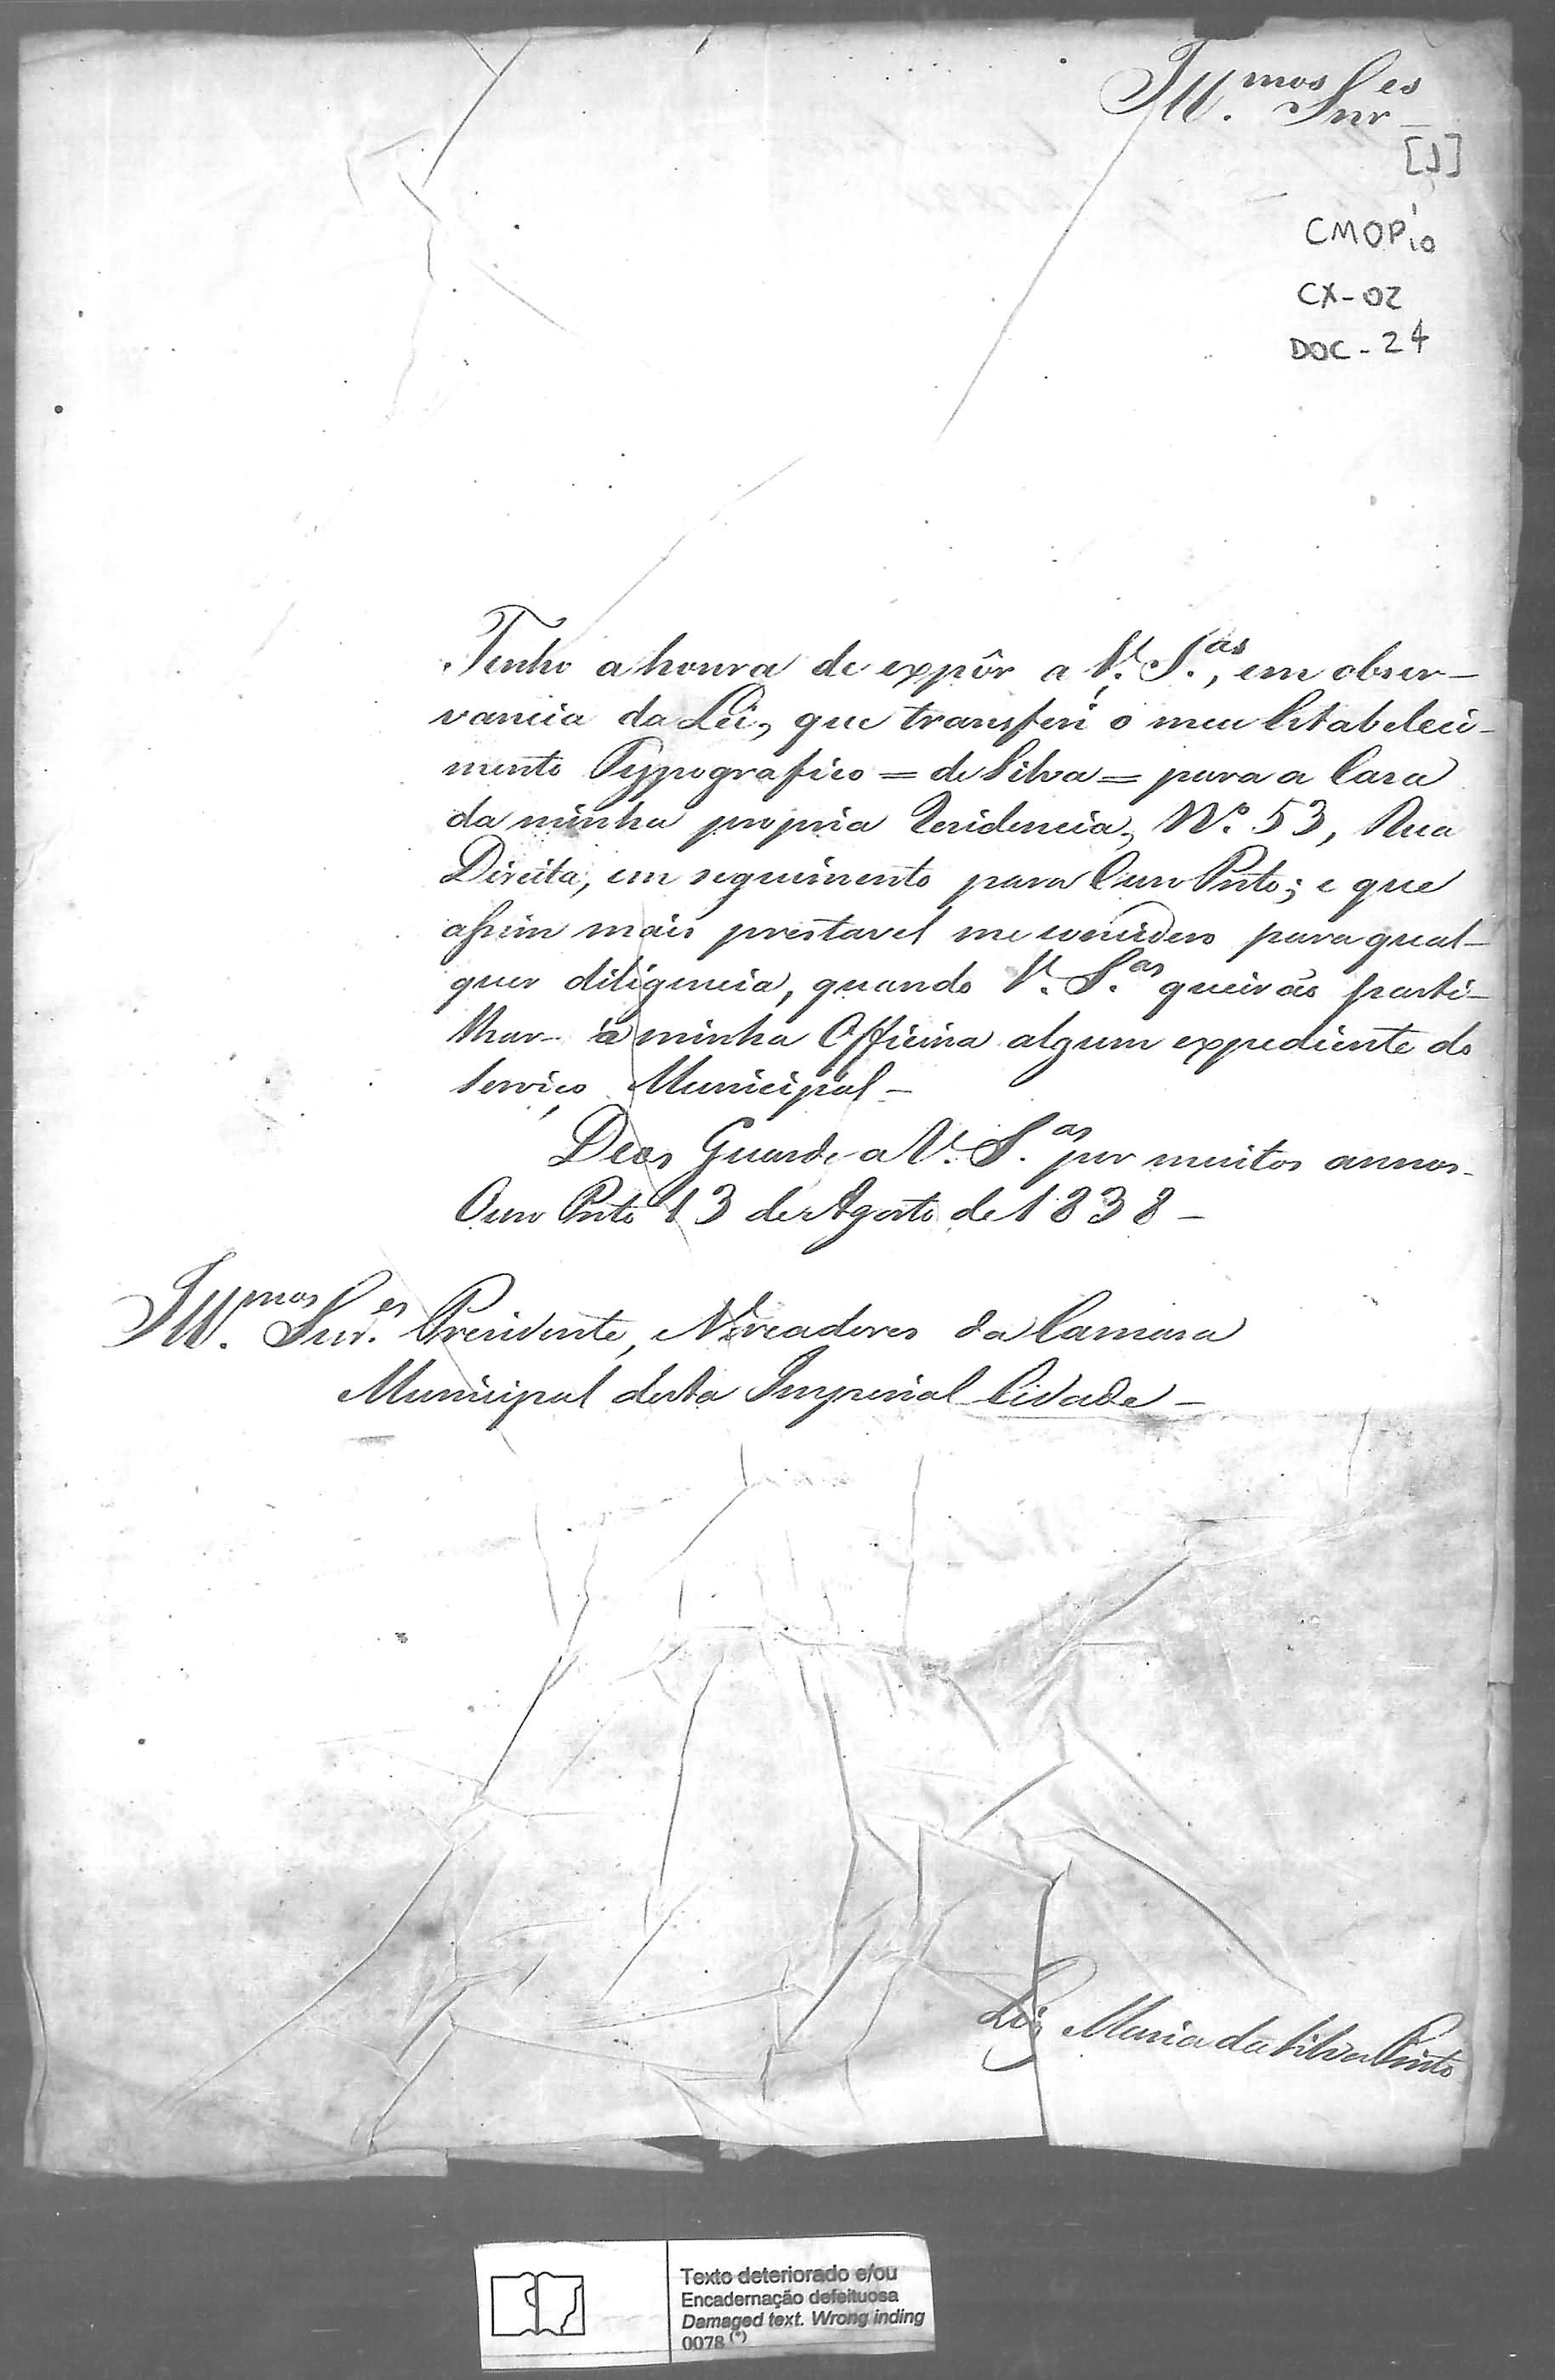 Ill.mos Snr.es
[1]
CMOP 10
CX-02
DOC-24
Tenho a honra de expôr a V. S.as, em obser-
vancia da Lei, que transferi o meu Estabeleci-
mento Typografico = de Silva = para a Casa
da minha propria Residencia, N.º 53, Rua
Direita, em seguimento para Ouro Preto; e que
assim mais prestavel me considero para qual-
quer diligencia, quando V. S.as queirão parti-
lhar à minha Officina algum expediente do
Serviço Municipal-
Deos Guarde a V. S.as por muitos annos-
Ouro Preto 13 de Agosto de 1838-
Ill.mos Snr.es Presidente, e Vereadores da Camara
Municipal desta Imperial Cidade-
Luiz Maria da Silva Pinto
Texto deteriorado e/ou
Encadernação defeituosa
Damaged text. Wrong inding
0078 (*)